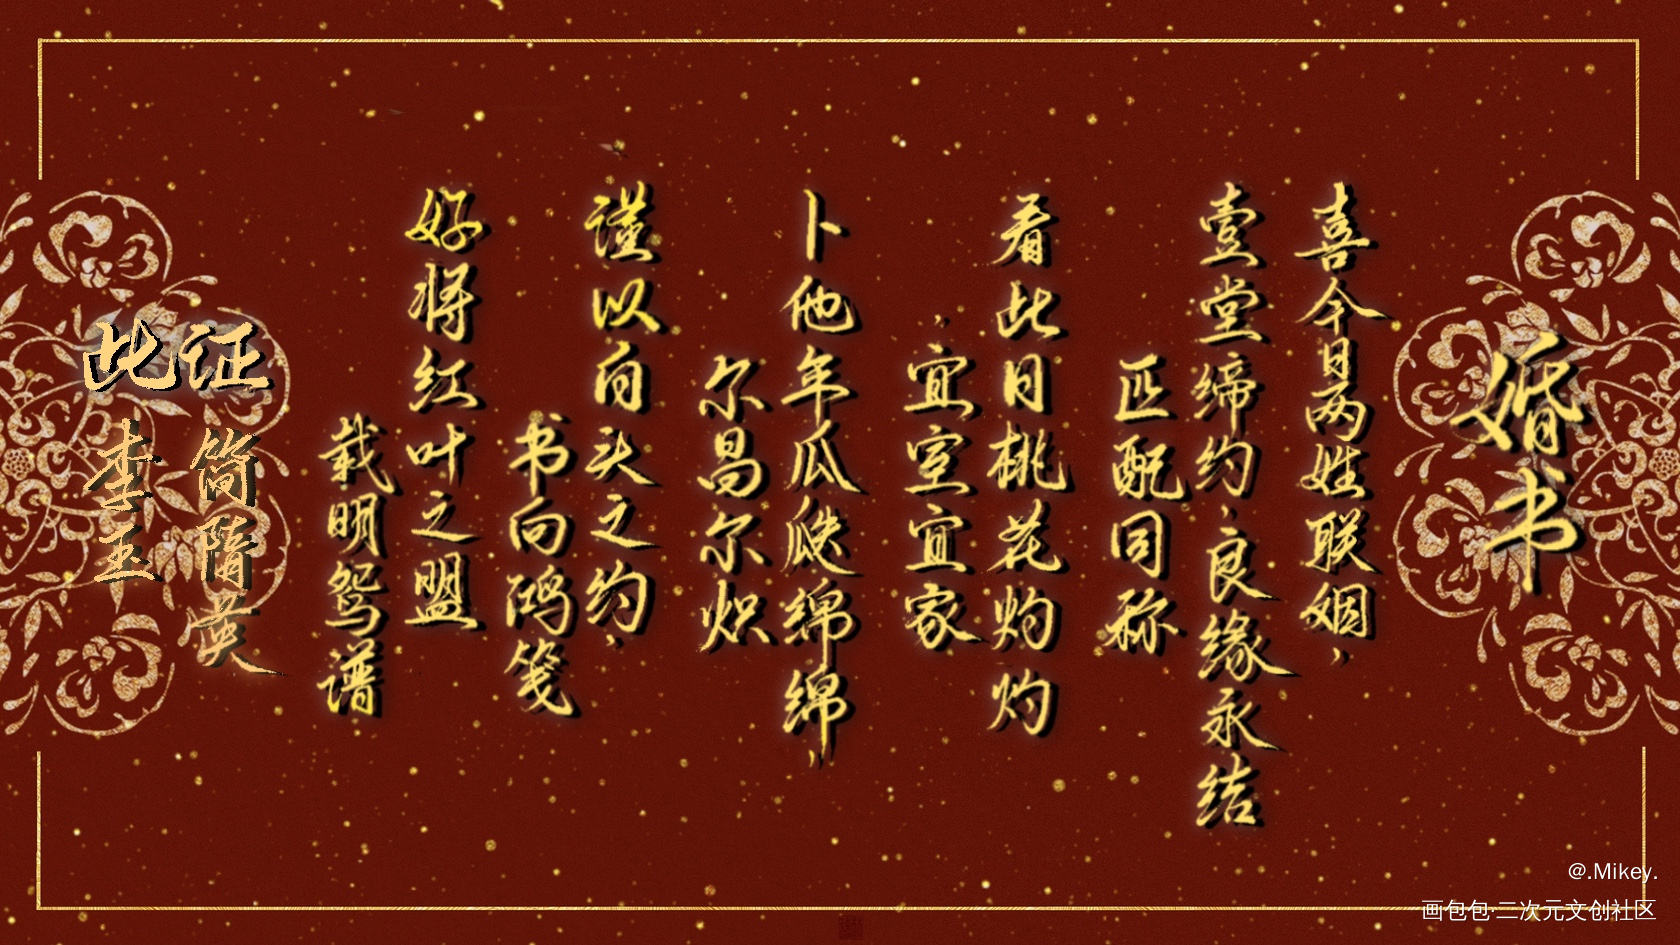 婚书
喜今日两姓联姻，
壹堂缔约，良缘永结
匹配同称
看此日桃花灼灼
，宜室宜家
卜他年瓜瓞绵绵，
尔昌尔炽
谨以白头之约，
书向鸿笺
好将红叶之盟
载明鸳谱
此证
简隋英
李玉
@.Mikey.
画包包·二次元文创社区